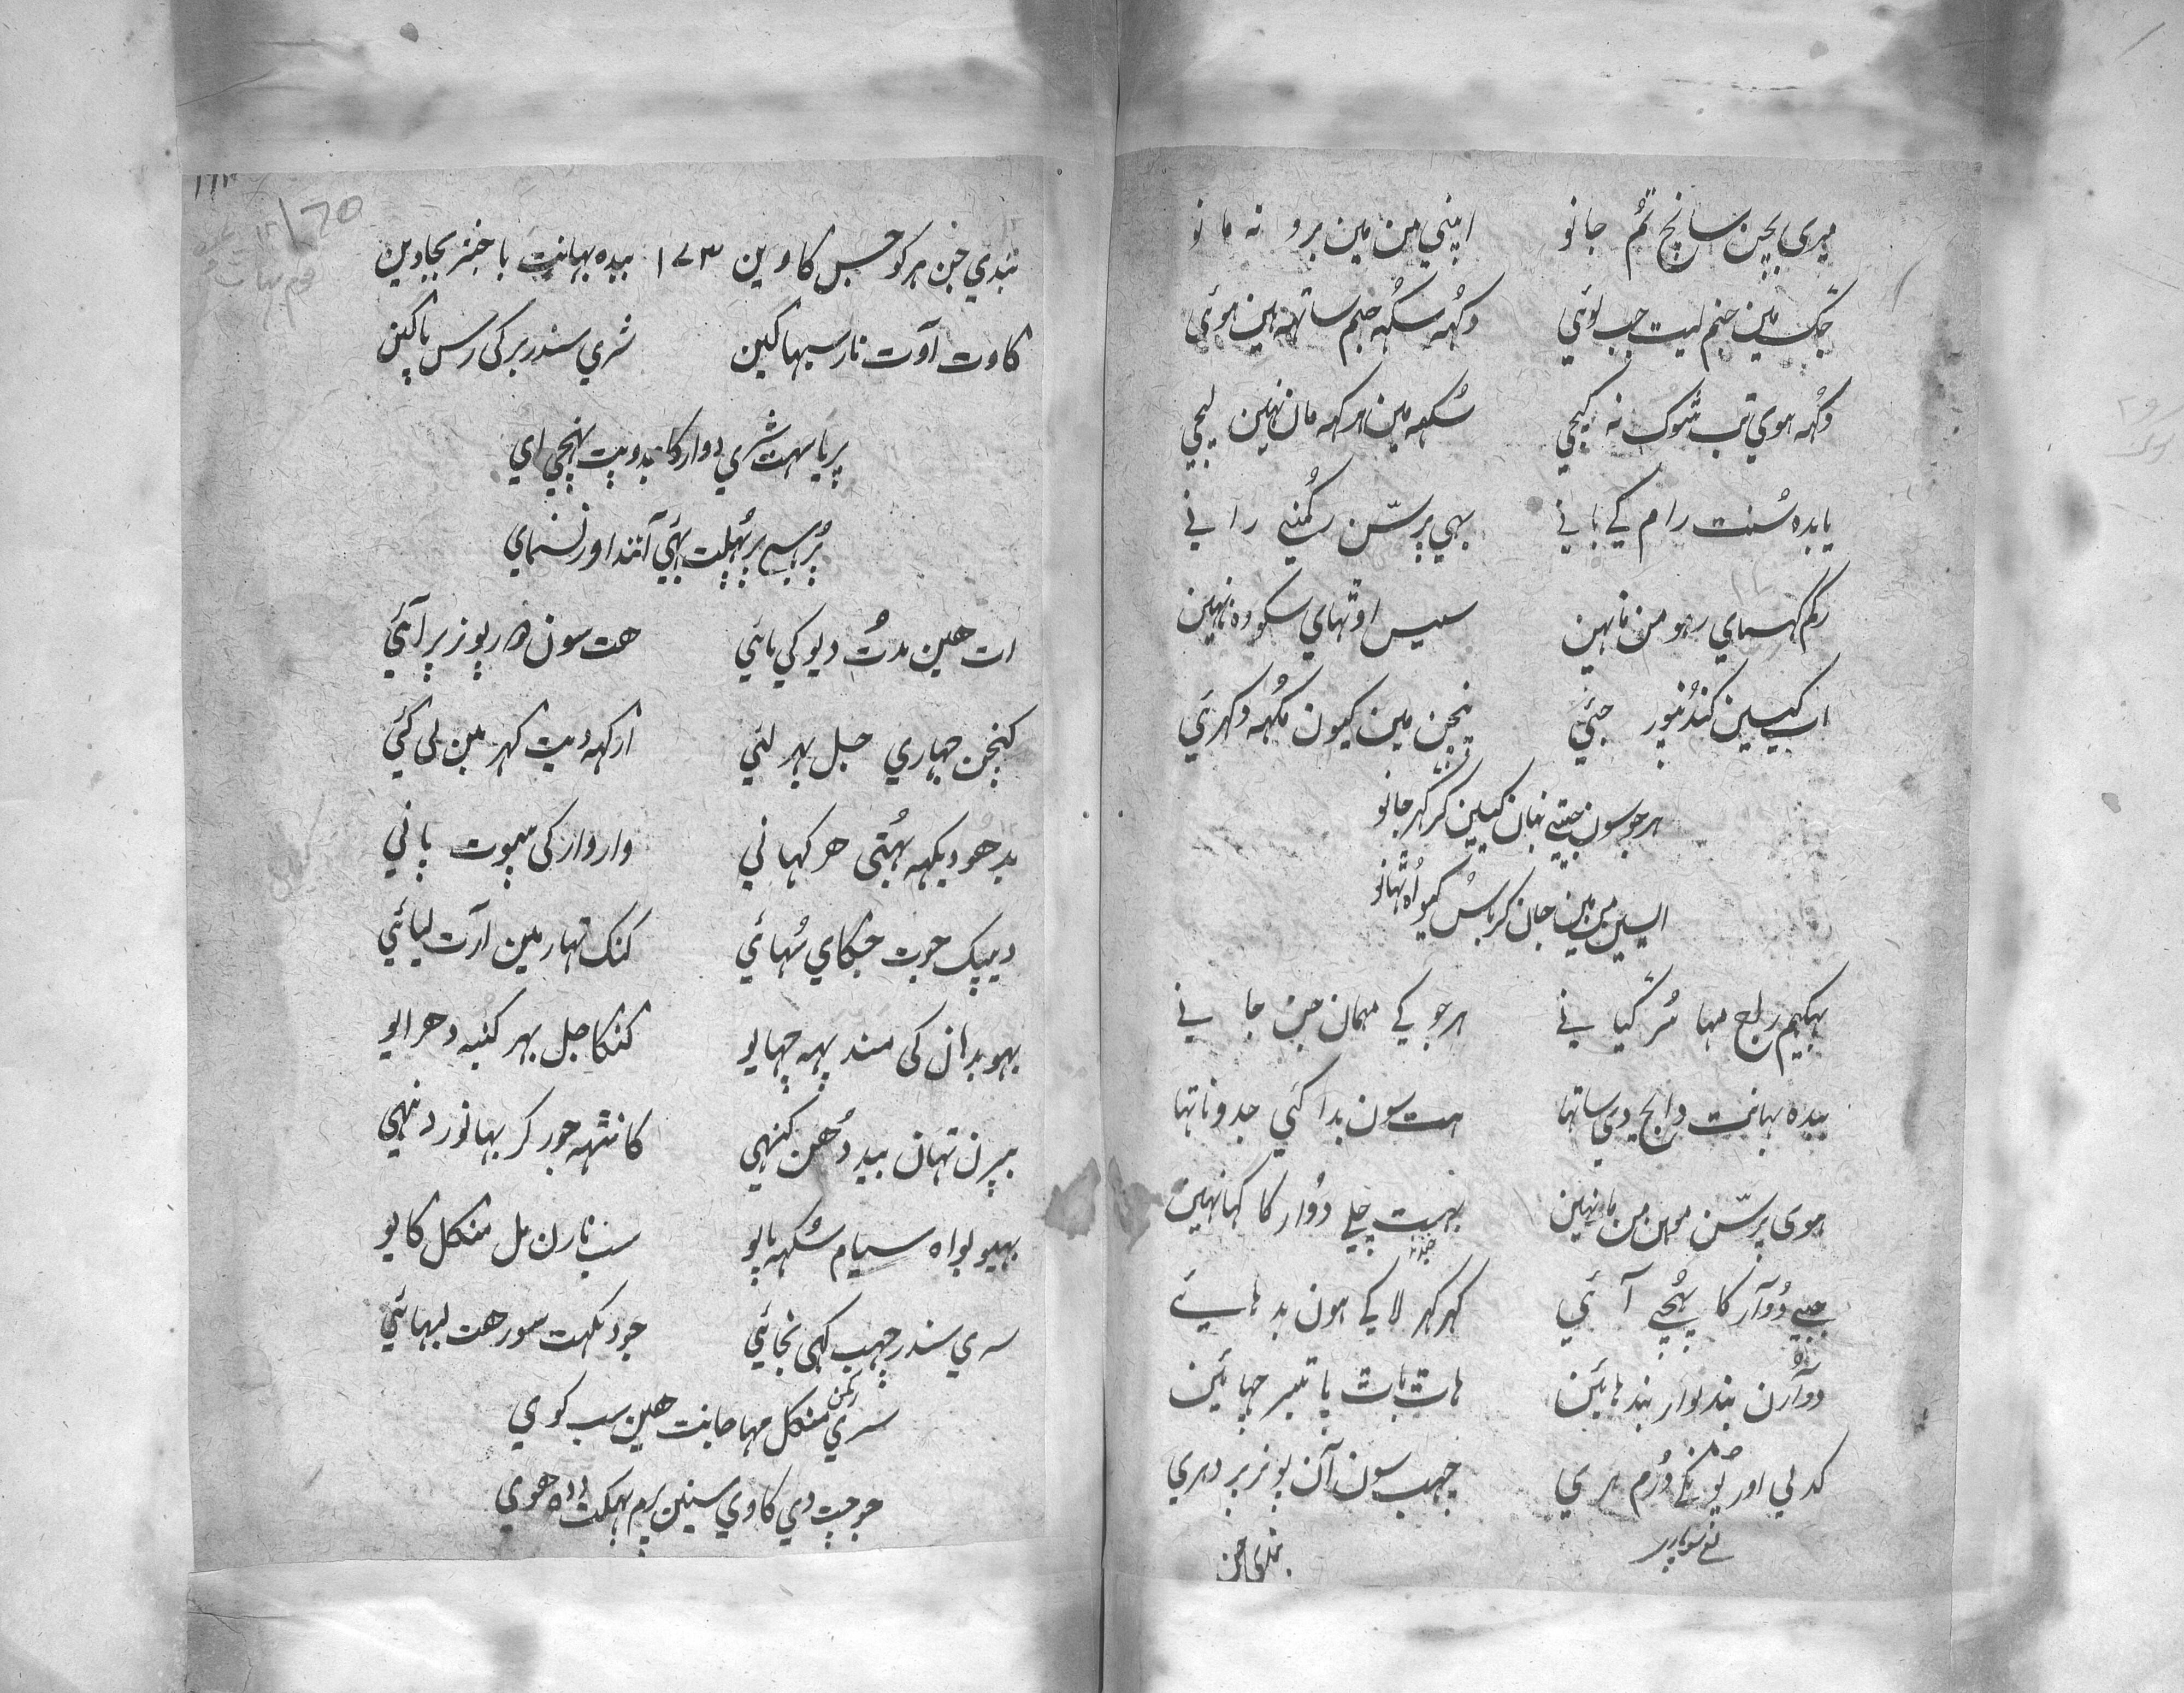 میری بچن سانچ تم جانو اپنی من مین برو نه مانو
جگ مین جنم لیت جب لوئی دکهه سکهه جنم ساتهه هین هوئی
دکهه هوی تب شوک نه کیجی سکهه مین هرکهه مان نهین لیجی
یا بده سنت رام کی بانی بهی پرسن رکمنی رانی
رکم کهسای رهو من ماهین سیس اوتهای سکو وه نهین
اب کیسین کندنپور جئی پنچن مین کیون مکهه دکهرئی
هر جو سون جیتی نهان کیسین کر گهر جانو
ایسین من مین جان کر باس کیو اه تهانو
بهیکهم راج مها سر گیانی هر جو کی مهمان جن جانی
بیده بهانت دایج دی ساتها هت سون بدا کئی جدوناتها
هوی پرسن موهن من ماهین بهیت چلی دوارکا کهانهین
جبی دوآرکا پهنچی آئی گهر گهر لاکی هون بدهائی
دوآرن بندنوار بندهائین هات بات پاتمبر چهائین
کدلی اور پونگی درم هری چهب سون آن پونر پر دهری
بندی جن
بندی جن هر کو جس کاوین ۱۷۳ بیده بهانت باجنتر بجاوین
کاوت آوت نار سبهاگین شری سندر بر کی رس پاگین
پریا سهت شری دوارکا جدوپت پهنچی ای
پر سب پرپهلت بهئی آنند اور نسمای
ات هین مدت دیوکی مائی هت سون دوار پونر پر آئی
کنچن جهاری جل بهر لئی ارکهه دیت گهر مین لی گئی
بدهو دیکهه بهتی هرکهانی وار وار کی پیوت پانی
دیپک جوت جگای سهائی کنک تهار مین آرت لیائی
بهو بدان کی مندپ چهایو گنگا جل بهر کنبه دهرایو
بپرن تهان بید دهن کینهی گانتهه جور کر بهانور دینهی
بهیو بواه سیام سکهه پایو سب نارن مل منگل گایو
سری سندر چهب کهی نجائی جو دیکهت سو رهت لبهائی
سری رکمن منگل مها جانت هین سب کوی
جو چت دی گاوی سنین پرم بهگت وه هوی